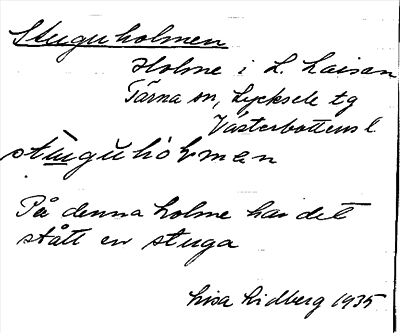 Stuguholmen
Holme i L. Laisan
Tärna sn, Lycksele tg
Västerbottens l
stuguhólman
På denna holme har det
stått en stuga
Lisa Lidberg 1935